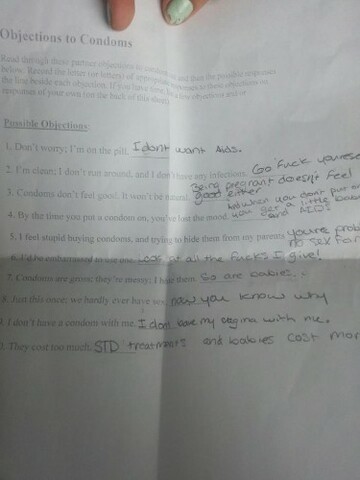 Objections to Condoms
Read through these partner objections to condom use and then the possible responses
below. Record the letter (or letters) of appropriate responses to these objections on
the line beside each objection. If you have time, a few objections and/or
responses of your own (use the back of this sheet).
Possible Objections:
1. Don't worry; I'm on the pill. I dont want AIDS.
2. I'm clean; I don't run around, and I don't have any infections. Go fuck
3. Condoms don't feel good. It won't be natural. Being pregnant doesn't feel good either
4. By the time you put a condom on, you've lost the mood. and when you don't put you get a little and AIDS
5. I feel stupid buying condoms, and trying to hide them from my parents. you're no sex for
6. I'd be embarrassed to use one. LOOK at all the fucks I give!
7. Condoms are gross; they're messy; I hate them. So are babies.
8. Just this once; we hardly ever have sex. now you know why
9. I don't have a condom with me. I dont have my vagina with me.
They cost too much. STD treatments and babies cost